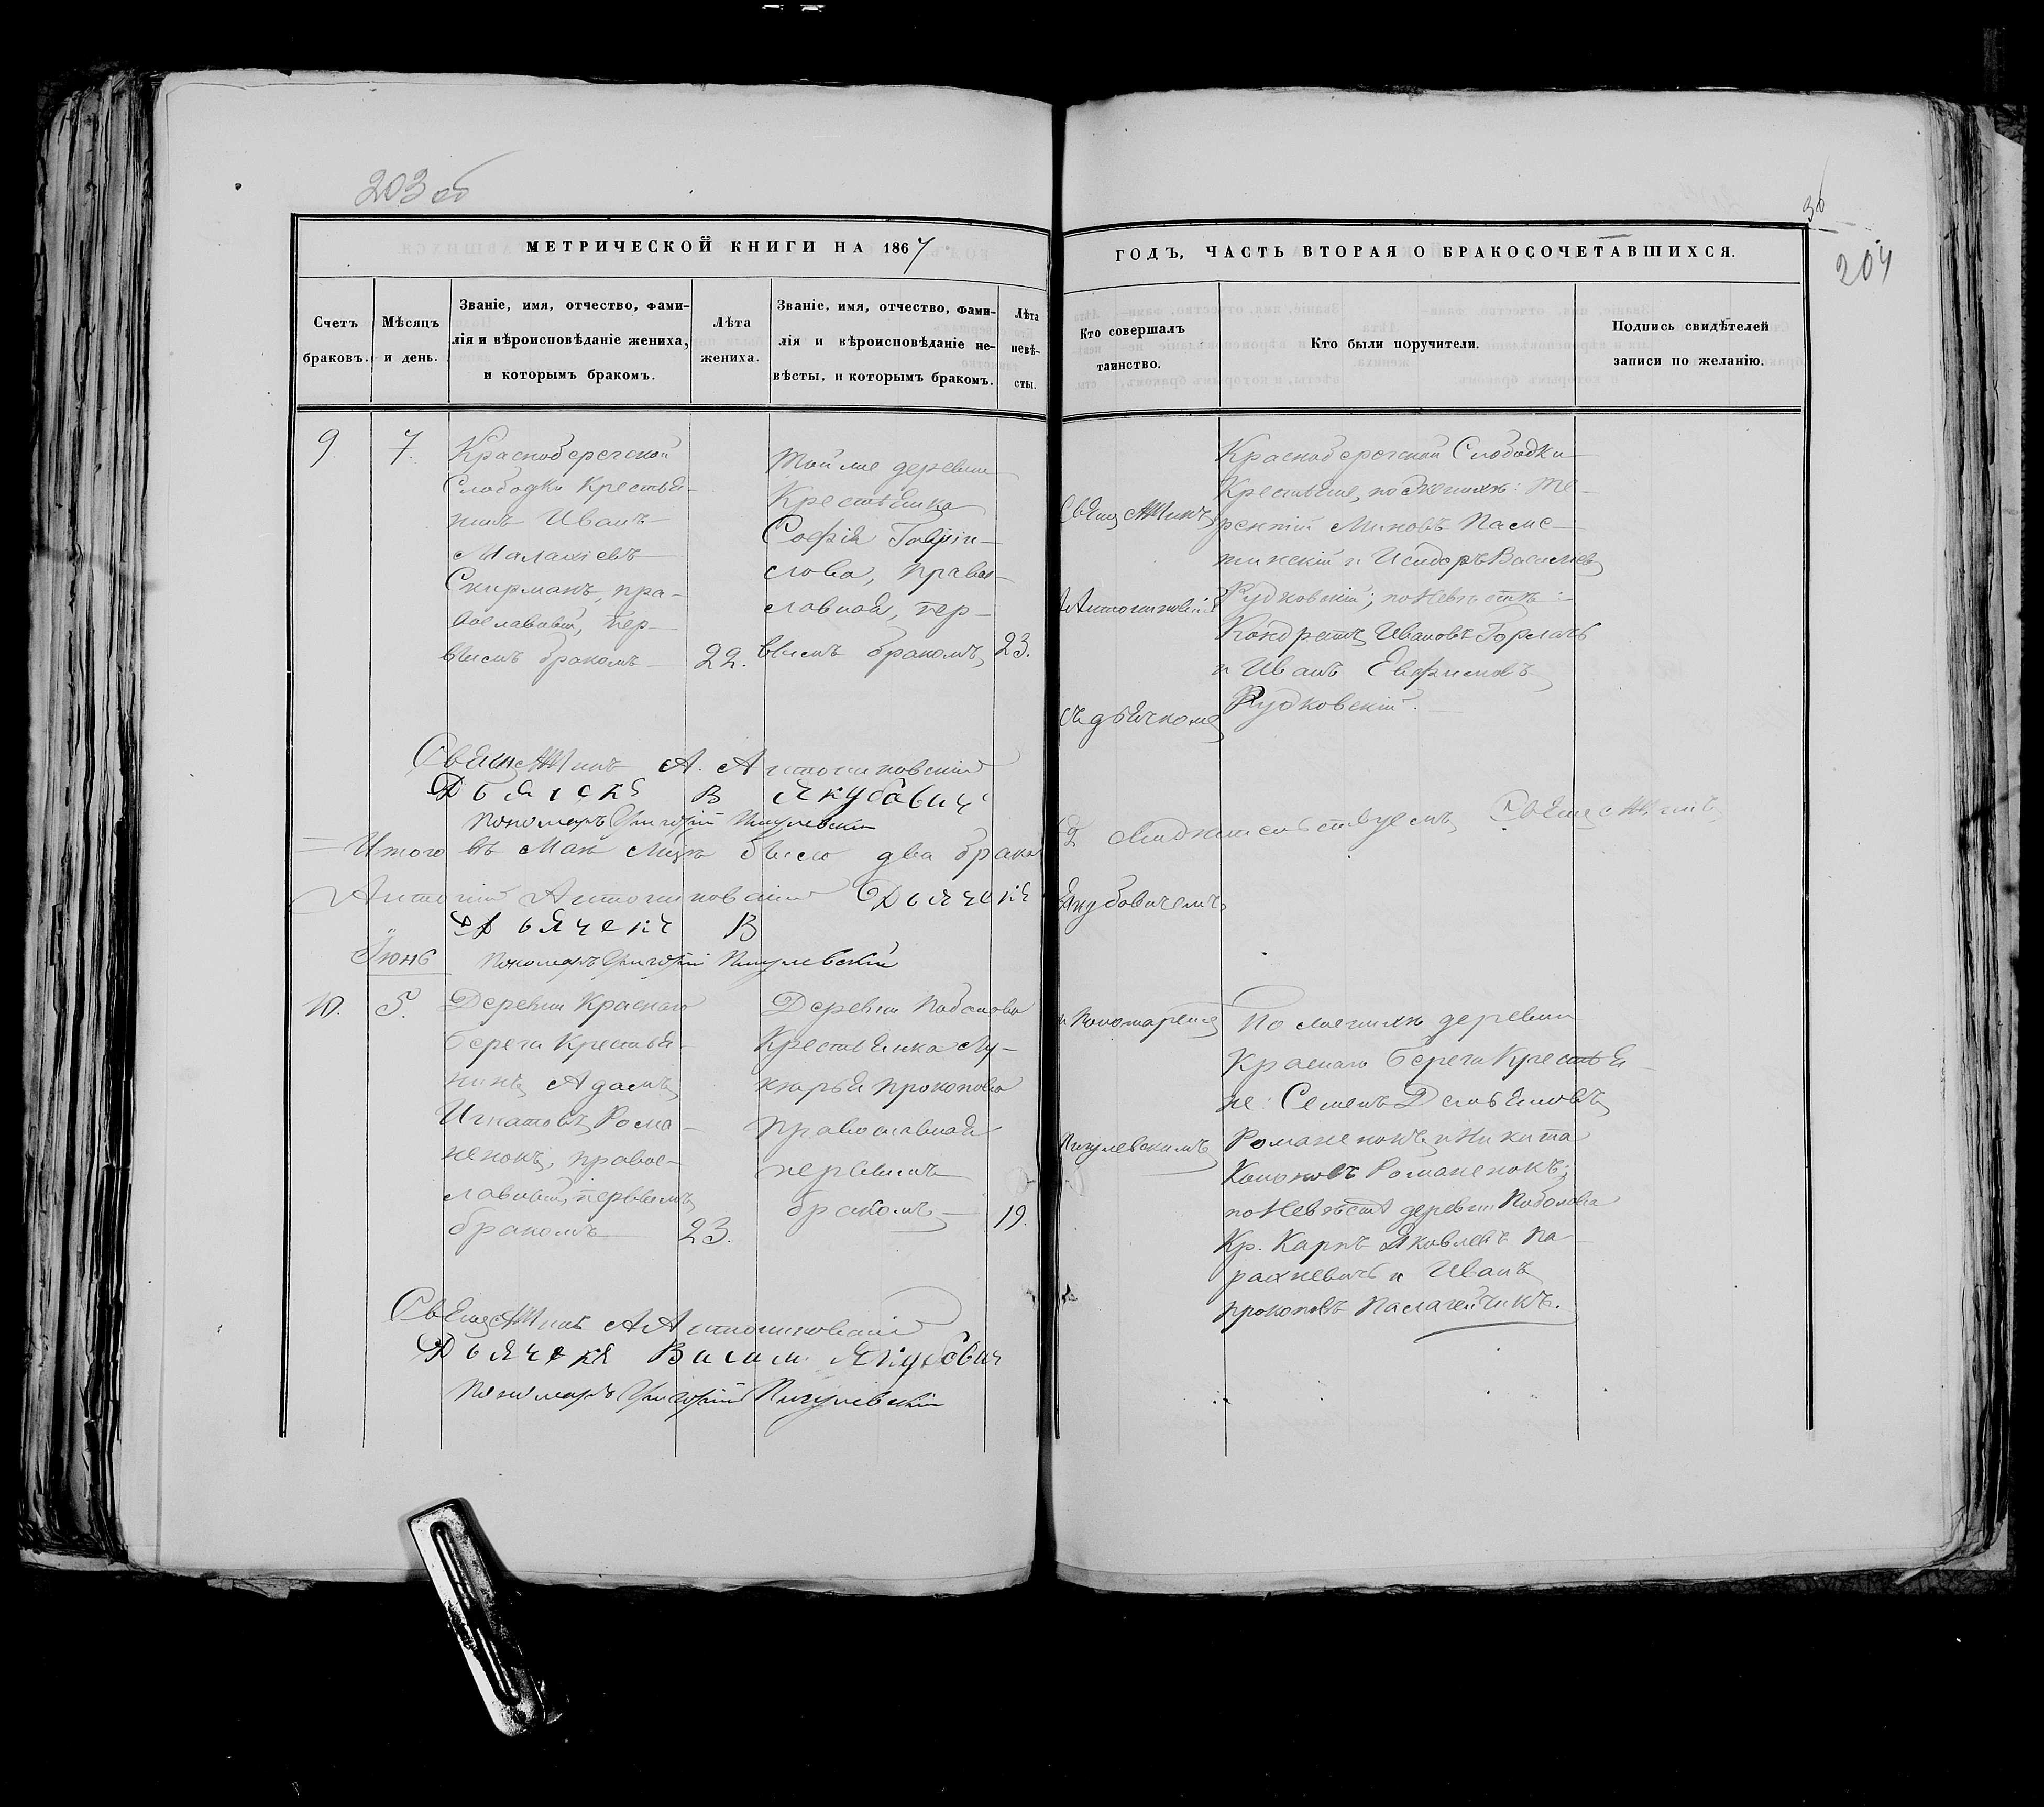 203 об
36
204
МЕТРИЧЕСКОЙ КНИГИ НА 1867
ГОДЪ, ЧАСТЬ ВТОРАЯ О БРАКОСОЧЕТАВШИХСЯ.
Счетъ браковъ.
Мѣсяцъ и день.
Званіе, имя, отчество, фами-
лія и вѣроисповѣданіе жениха,
и которымъ бракомъ.
Лѣта жениха.
Званіе, имя, отчество, фами-
лія и вѣроисповѣданіе не-
вѣсты, и которымъ бракомъ.
Лѣта невѣ-
сты.
Кто совершалъ
таинство.
Кто были поручители.
Подпись свидѣтелей
записи по желанію.
9. 7.
Краснобережской
Слободки Крестья-
нинъ Иванъ
Малахіевъ
Скирманъ, пра-
вославный, пер-
вымъ бракомъ
22.
Той же деревни
Крестьянка
Софія
слова, право-
славная, пер-
вымъ бракомъ
23.
Священникъ
А Антониковскій
съ дьячкомъ
Краснобережской Слободки
Крестьяне, по женихѣ: Те-
рентій Миновъ
и Исидоръ Васильевъ
Рудковскій; по невѣстѣ:
Кондратъ Ивановъ Горлачъ
и Иванъ Евфимовъ
Рудковскій.
Священникъ А. Антониковскій
Дьячекъ В Якубавичъ
Пономаръ Григорій Пигулевскій
Итого въ Маѣ м-цѣ было два брака
2 Свидетельствуемъ, Священникъ
Антоній Антониковскій Дьячекъ
Якубовичемъ
Дьячекъ В
Іюнь
Пономаръ Григорій Пигулевскій
10. 5.
Деревни Краснаго
берега Крестья-
нинъ Адамъ
Игнатовъ Рома-
ненокъ, право-
славный, первымъ
бракомъ
23.
Деревни Поболова
Крестьянка Лу-
керья Прокопова
православная
первымъ
бракомъ
19.
и Пономаремъ
Пигулевскимъ
По женихѣ деревни
Краснаго берега Крестья-
не: Семенъ Демьяновъ
Романенокъ и Никита
Кононовъ Романенокъ;
по невѣстѣ деревни Поболова
Кр. Карпъ Яковлевъ Па-
рахневичъ и Иванъ
Прокоповъ
Священникъ А Антониковскій
Дьячекъ Васил. Якубович
Пономаръ Григорій Пигулевскій